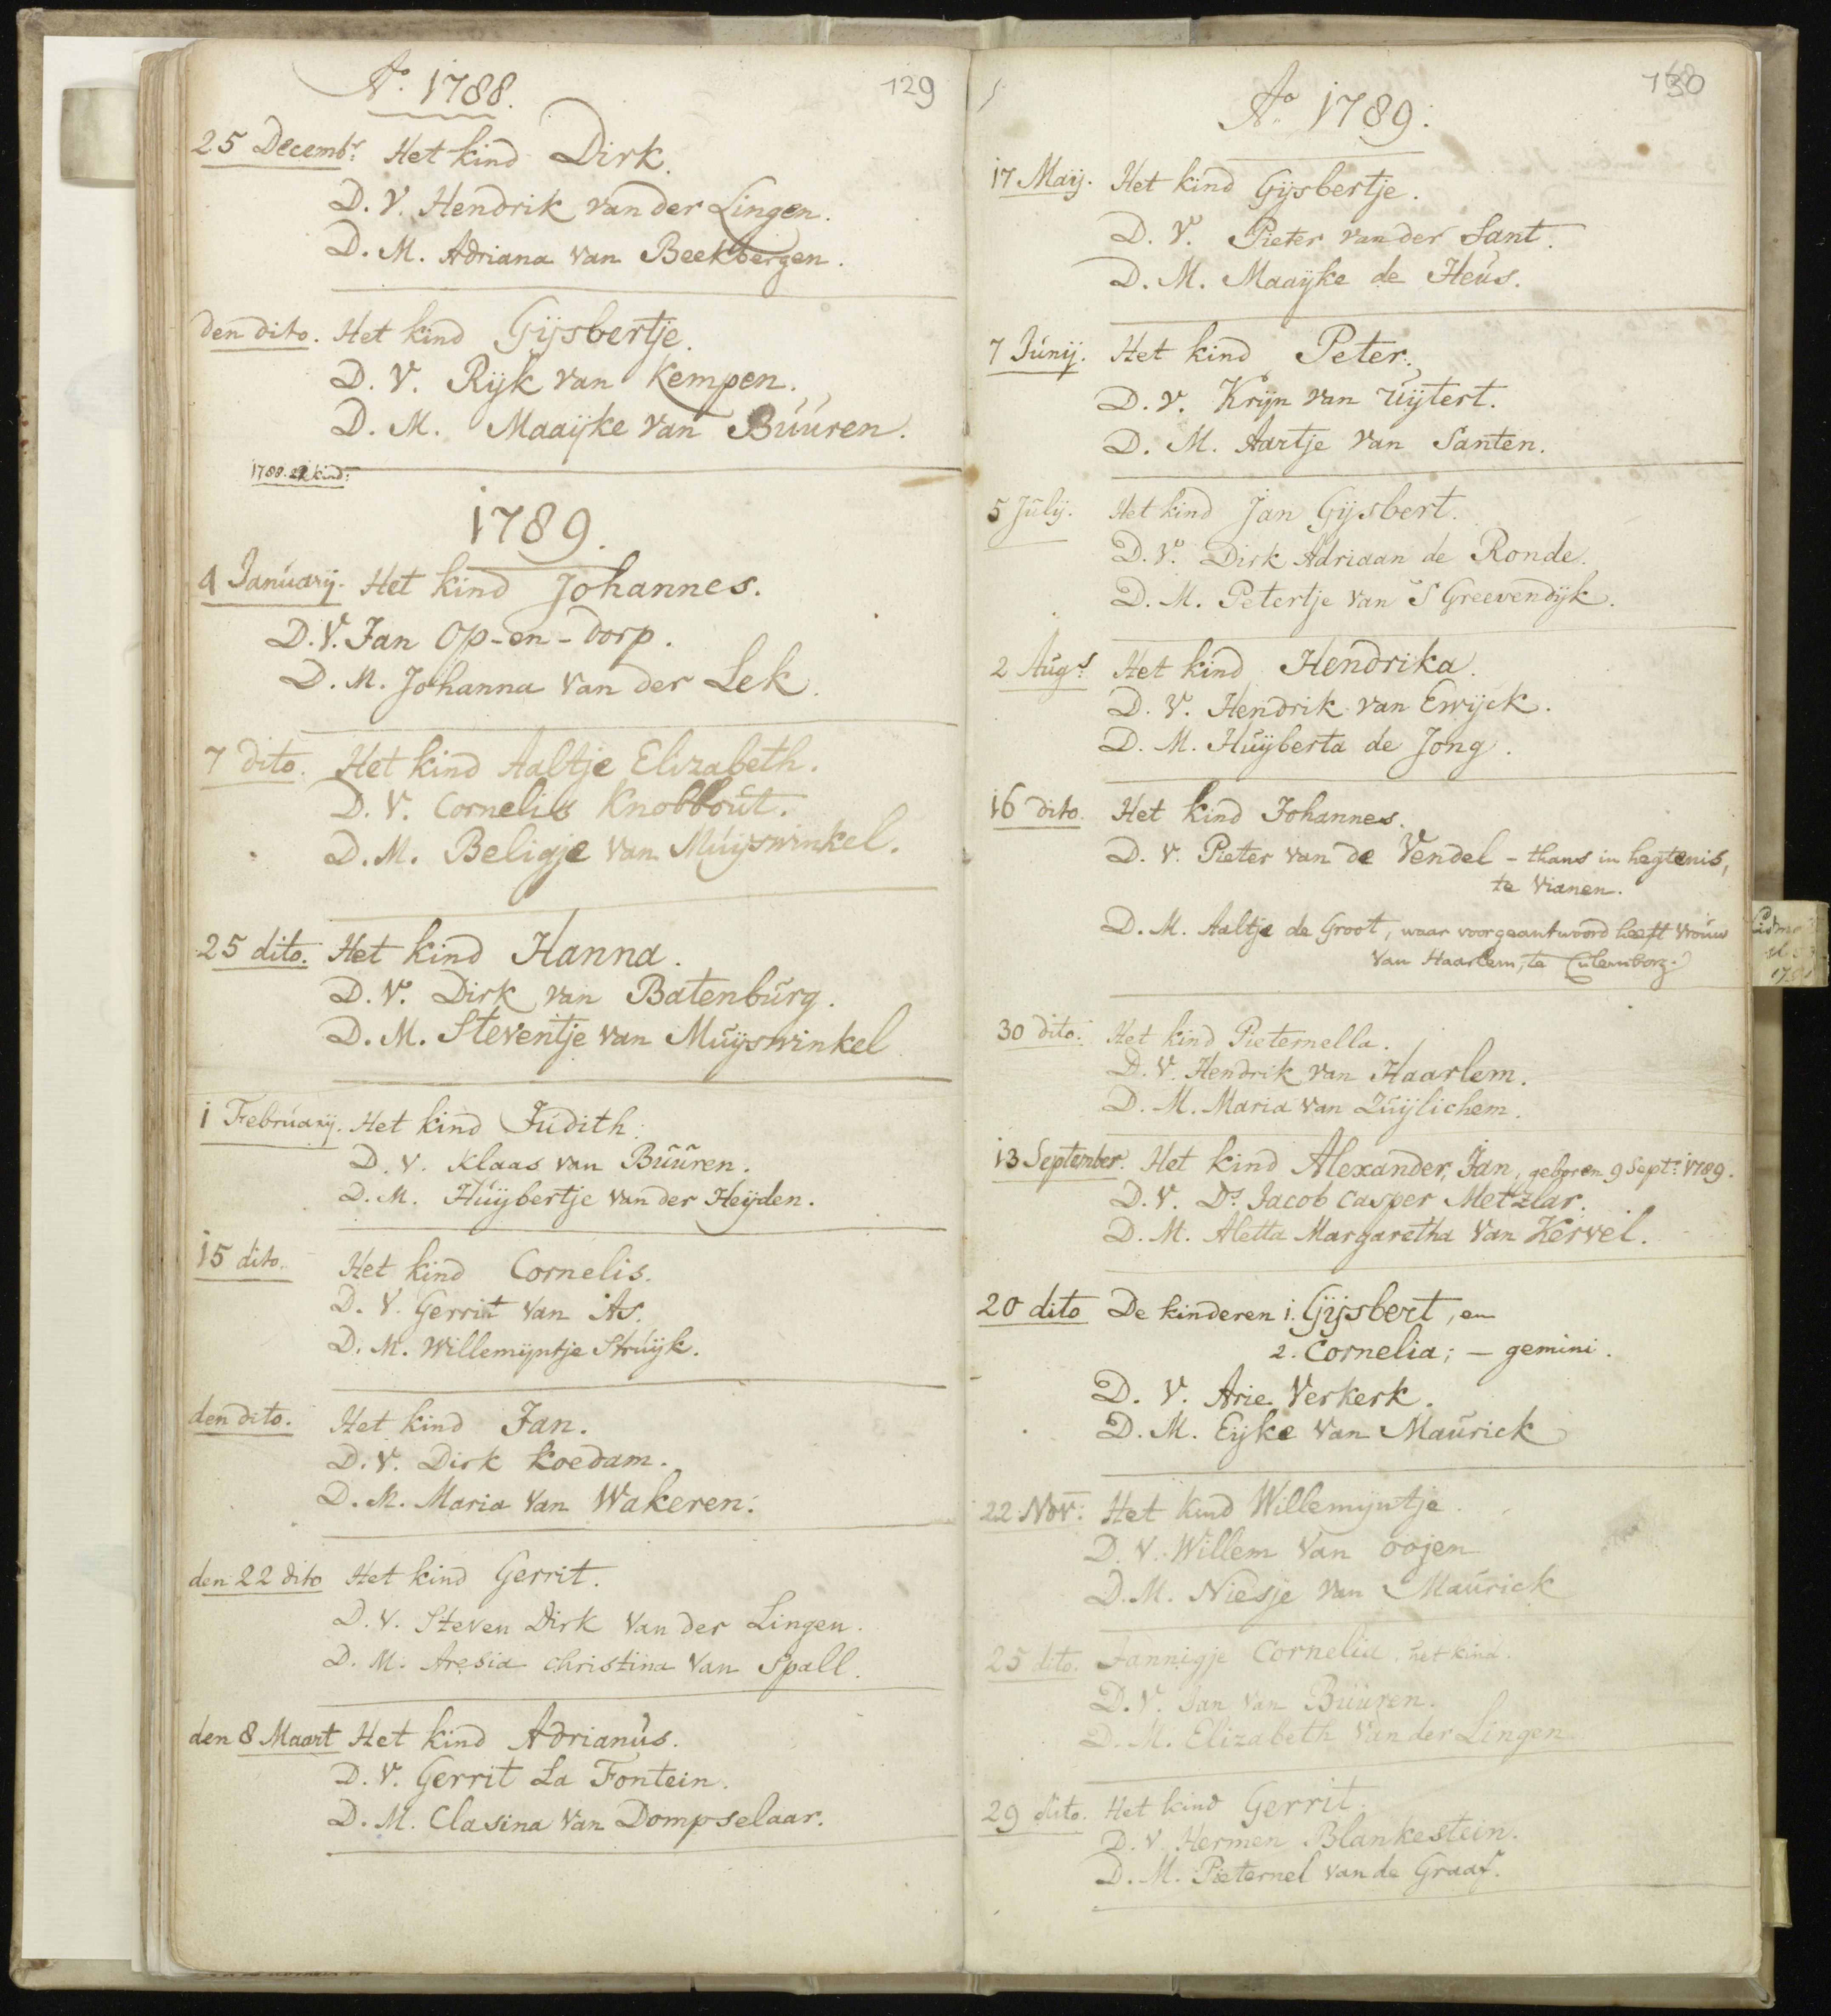 Aº 1788.
129
25 Decembr: Het kind Dirk.
D. V. Hendrik van der Lingen.
D. M. Adriana van Beekbergen.
den dito. Het kind Gijsbertje.
D. V. Rijk van Kempen.
D. M. Maaijke van Buuren.
1788. 22 kind:
1789.
4 January. Het kind Johannes.
D. V. Jan Op-en-dorp.
D. M. Johanna van der Lek.
7 dito. Het kind Aaltje Elizabeth.
D. V. Cornelis Knobbout.
D. M. Beligje van Muijswinkel.
25 dito. Het kind Hanna.
D. V. Dirk van Batenburg.
D. M. Steventje van Muijswinkel
1 February. Het kind Judith.
D. V. Klaas van Buuren.
D. M. Huijbertje van der Heijden.
15 dito. Het kind Cornelis.
D. V. Gerrit van As.
D. M. Willemijntje Struijk.
den dito. Het kind Jan.
D. V. Dirk Koedam.
D. M. Maria van Wakeren.
den 22 dito Het kind Gerrit.
D. V. Steven Dirk van der Lingen.
D. M. Aresia Christina van Spall.
den 8 Maart Het kind Adrianus.
D. V. Gerrit La Fontein.
D. M. Clasina van Dompselaar.
130
Aº 1789.
17 Maij. Het kind Gijsbertje.
D. V. Pieter van der Sant.
D. M. Maaijke de Heus.
7 Junij. Het kind Peter.
D. V. Krijn van Uijtert.
D. M. Aartje van Santen.
5 Julij. Het kind Jan Gijsbert.
D. V. Dirk Adriaan de Ronde.
D. M. Petertje van S Greevendijk.
2 Augs Het kind Hendrika.
D. V. Hendrik van Ewijck.
D. M. Huijberta de Jong.
16 dito. Het kind Johannes.
D. V. Pieter van de Vendel - thans in hegtenis,
te Vianen.
D. M. Aaltje de Groot, waar voor geantwoord heeft Vrouw
van Haarlem, te Culemborg.
30 dito. Het kind Pieternella.
D. V. Hendrik van Haarlem.
D. M. Maria van Zuijlichem.
13 September. Het kind Alexander, Jan, geboren 9 Sept: 1789.
D. V. Ds. Jacob Casper Metzlar.
D. M. Aletta Margaretha van Kervel.
20 dito De kinderen 1. Gijsbert, en
2. Cornelia; - gemini.
D. V. Arie Verkerk.
D. M. Eijke van Maurick
22 Nov: Het kind Willemijntje.
D. V. Willem van Oojen
D. M. Niesje van Maurick
25 dito. Jannigje Cornelia, het kind.
D. V. Jan van Buuren.
D. M. Elizabeth van der Lingen
29 dito. Het kind Gerrit.
D. V. Hermen Blankestein.
D. M. Pieternel van de Graaf.